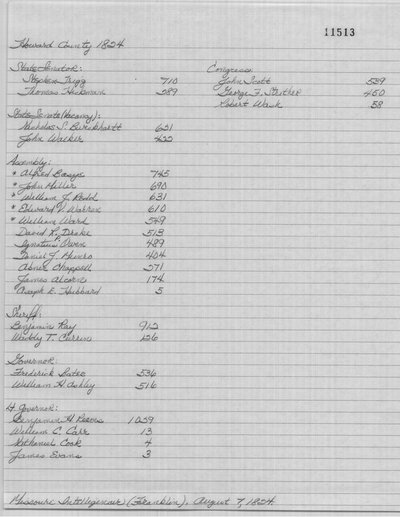 11513
Howard County 1824
State Senator:
Stephen Trigg 710
Thomas Hickman 289
Congress:
John Scott 539
George F. Strother 450
Robert Wash 58
State Senate (Vacancy):
Nicholas S. Burckhartt 651
John Walker 422
Assembly:
* Alfred Basye 745
* John Miller 690
* William J. Redd 631
* Edward V. Warren 610
* William Ward 549
David R. Drake 513
Ignatius Owen 489
Daniel J. Munro 404
Abner Chappell 271
James Alcorn 174
Joseph E. Hubbard 5
Sheriff:
Benjamin Ray 912
Waddy T. Curren 126
Governor:
Frederick Bates 536
William H. Ashley 516
Lt Governor:
Benjamin H. Reeves 1029
William C. Carr 13
Nathaniel Cook 4
James Evans 3
Missouri Intelligencer (Franklin), August 7, 1824